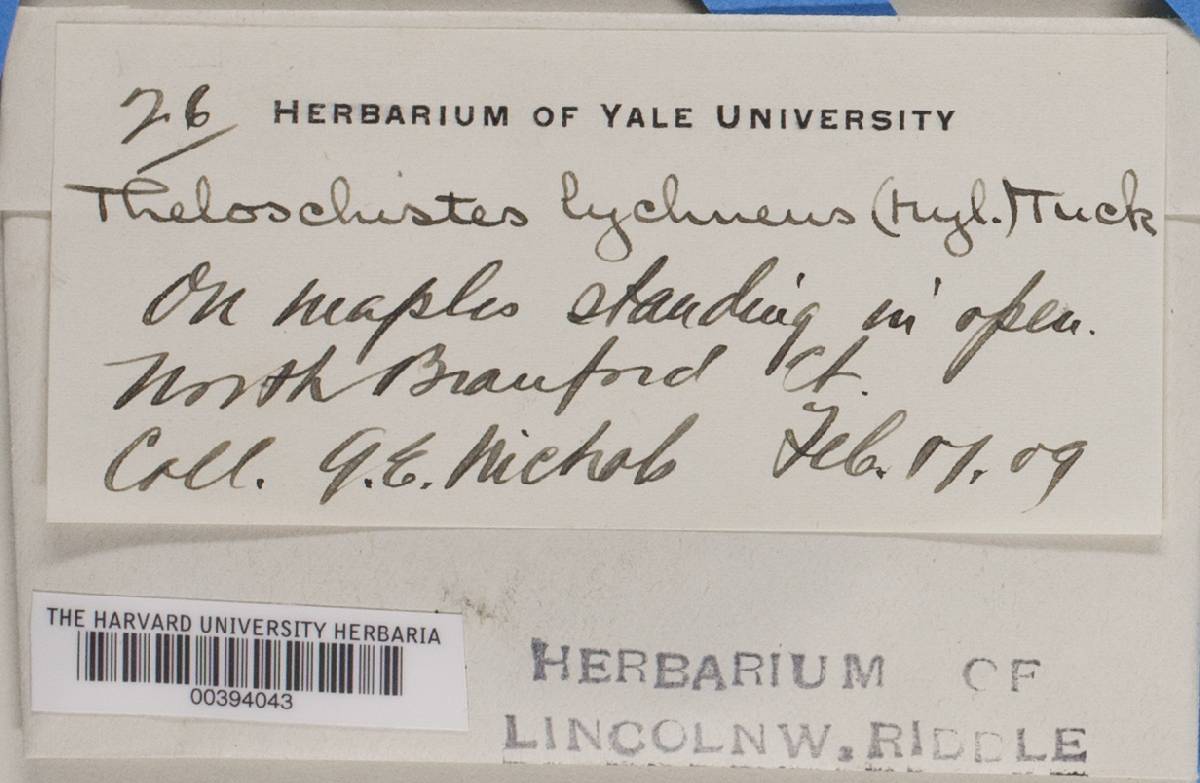 76 HERBARIUM OF YALE UNIVERSITY
Theloschistes lychneus (Nyl.) Tuck
On maples standing in open.
North Branford Ct.
Coll. G.E. Nichols Feb. 09
THE HARVARD UNIVERSITY HERBARIA
00394043
HERBARIUM OF
LINCOLN W. RIDDLE